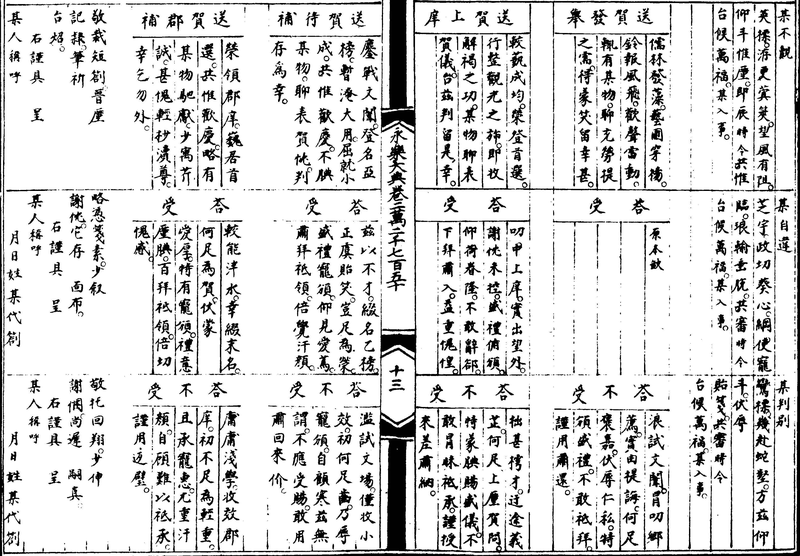 某不觀
英標浮更蓂莢望風有阻
仰斗惟厪即辰時令共惟
台候萬福某入事
送賀發舉
儒林發藻藝圃穿楊
鈴報風飛歡聲雷動
輒有某物聊克勞提
之需得蒙笑留幸甚
送賀上庠
較藝成均榮登首選
行整觀光之旆即收
解褐之功某物聊表
賀儀台茲判留是幸
某自選
芝宇政切葵心嗣便寵
臨琅翰垂貺共審時令
台候萬福某入事
答受
原本缺
答受
叨甲上庠實出望外
謝忱未控盛禮俯頒
仰荷眷隆不敢辭郤
下拜肅入益重愧惶
某判别
鶯標幾赴蛇墅方茲仰
斗伏辱
貽箋共審時令
台候萬福某入事
答不受
浪試文闈冒叨鄉
薦實由提誨何足
褒嘉伏辱仁私特
頒盛禮不敢祗拜
謹用肅還
答不受
拙甚樗才迂途義
芷何足上厪賀問
特蒙腆賜盛儀不
敢冒昧祗承謹授
來差肅納
永樂大典卷二萬二千七百五十
十三
送賀待補
鏖戰文闈登名亞
榜暫淹大用屈就小
成共惟歡慶不腆
某物聊表賀忱判
存為幸
送賀郡補
榮領郡庠巍居首
選共惟歡慶略有
某物馳獻少寓芹
誠甚愧輕抄瀆尊
幸乞勿外
敬裁短劄晉厪
記錄筆祈
台炤
右謹具 呈
某人稱呼
答受
茲以不才綴名乙榜
正虞貽笑豈足為榮
盛禮寵頒仰見愛篤
肅拜祗領倍覺汗顏
答受
較能泮水幸綴末名
何足為賀伏蒙
愛厚特有寵頒禮意
厪腆百拜祗領倍切
愧感
略憑箋素少叙
謝忱它存 面布
右謹具 呈
某人稱呼
月日姓某代劄
答不受
濫試文場僅收小
效初何足齒乃辱
寵頒自顧寒茲無
謂不應受賜敢用
肅回來价
答不受
庸庸淺學收效郡
庠初不足為輕重
且承寵惠尤重汗
顏自顧難以祗承
謹用返璧
敬托回翔少伸
謝悃尚遲 嗣具
右謹具 呈
某人稱呼
月日姓某代劄